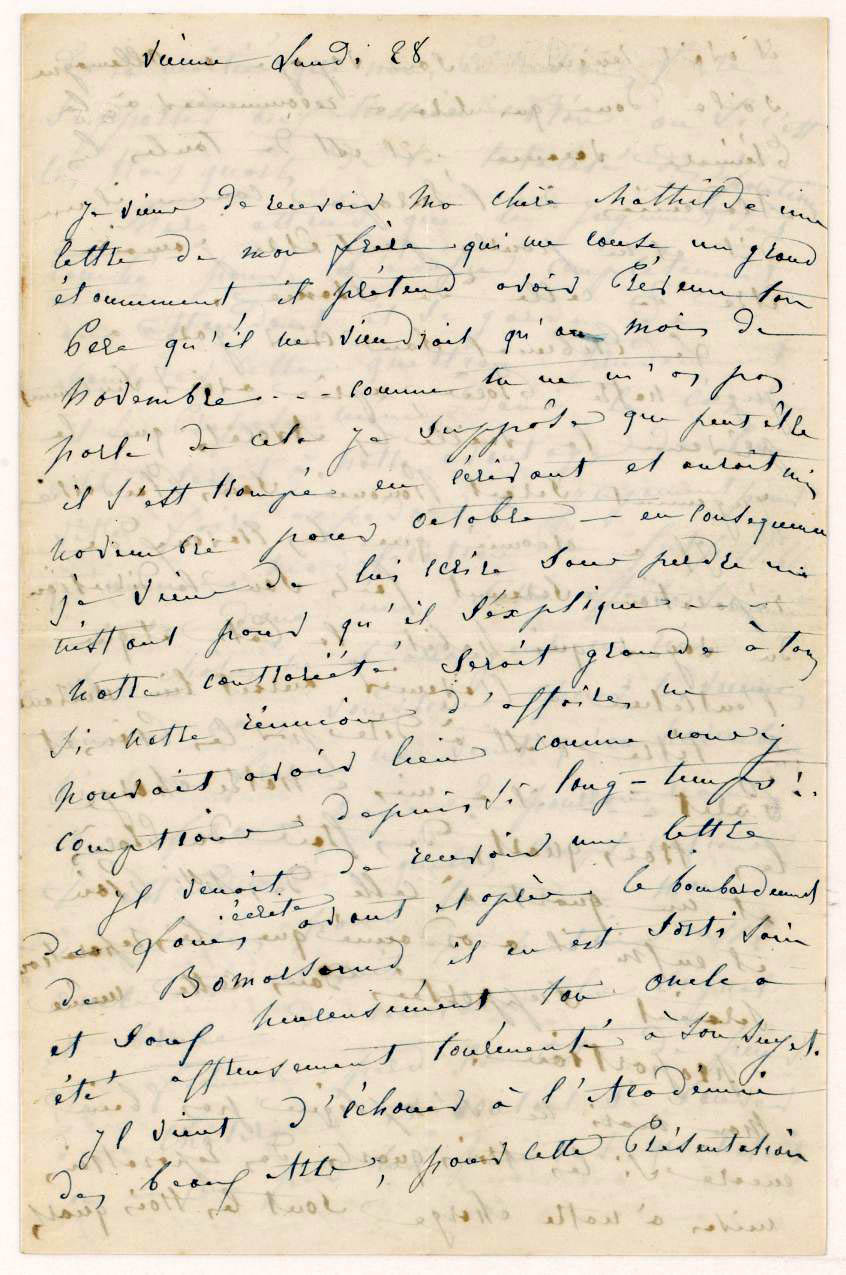 Vienne Lundi 28
je viens de recevoir ma chère Mathilde une
lettre de mon frère qui me cause un grand
étonnement il prétend avoir Prévenu ton
Pere qu'il ne viendroit qu'au mois de
novembre - - - comme tu ne m'as pas
parlé de cela je suppôse que peut être
il s'est trompé en écrivant et auroit mis
novembre pour octobre — en consequence
je viens de lui ecrire sans perdre un
instant pour qu'il s'éxplique - - -
notre contrariété seroit grande à tous
si notre réunion d'affaires ne
pouvait avoir lieu comme nous y
comptions depuis si long-temps !.
Il venoit de recevoir une lettre
de Louis écrite avant et après le bombardement
de Bomarsund, il en est sorti sain
et sauf heureusement ton oncle a
été affreusement tourmenté à son sujet.
Il vient d'échouer à l'Académie
des beaux Arts, pour cette Présentation